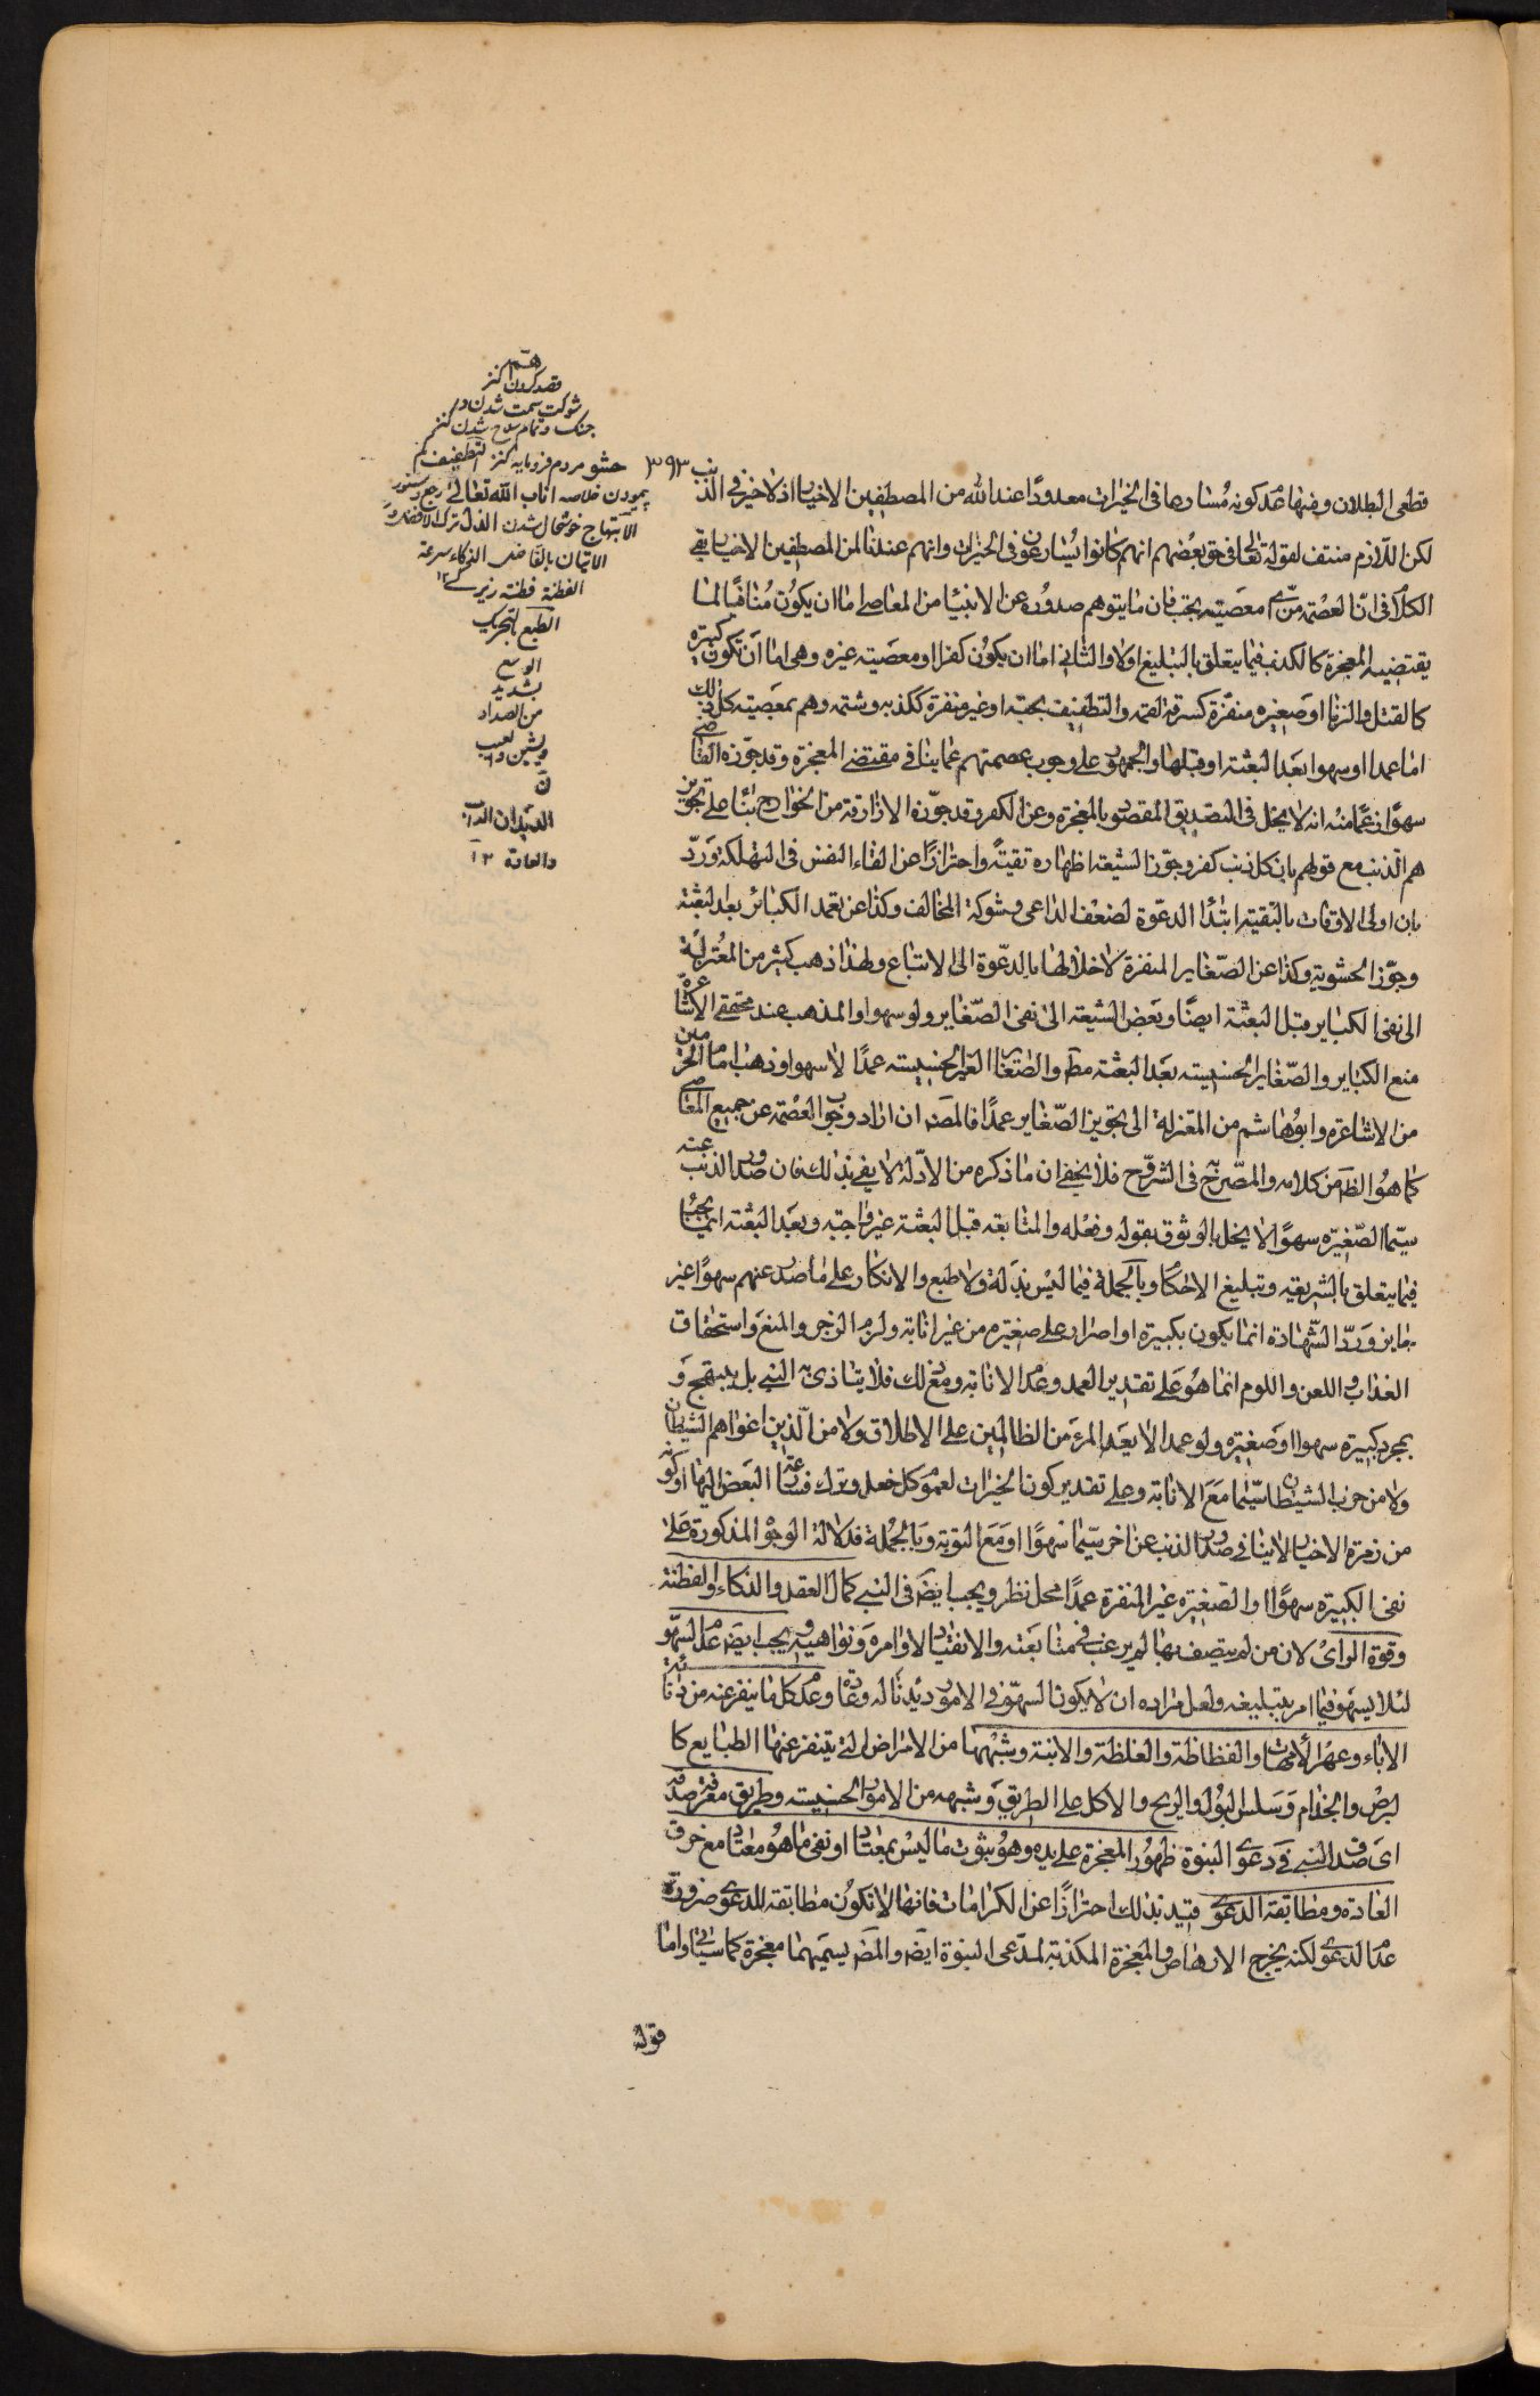 هم
قصد كردن كنز
شوكت سمت شدن در
جنك وتمام سلاح شدن كنز
حشو مردم فرومايه كنز التطفيف كم
پيمودن خلاصه اناب الله تعالى رجع دستور
الابتهاج خوشحال شدن الذل ترك الافضل و
الاتيان بالفاضل الذكاء سرعة
الفطنة فطنته زيركى ١٢
الطبع بالتحريك
الوسخ
بشديد
من الصداء
والشين والعيب
ق
الديدان الداب
والعادة ١٢
٣٩٣
قطعى البطلان ومنها عدم كونه مسارعا فى الخيرات معدودًا عند الله من المصطفين الاخيار اذ لا خير فى الذنب
لكن اللازم منتف لقوله تعالى فى حق بعضهم انهم كانوا يسارعون فى الخيرات وانهم عندنا لمن المصطفين الاخيار بقى
الكلام فى ان العصمة من اى معصية يجب فان ما يتوهم صدوره عن الانبياء من المعاصى اما ان يكون منافيًا لما
يقتضيه المعجزة كالكذب فيما يتعلق بالتبليغ اولا والثانى اما ان يكون كفرا او معصية غيره وهى اما ان تكون كبيرة
كالقتل والزنا او صغيره منفرة كسرقة لقمه والتطفيف بحبة او غير منفرة ككذبه وشتمه وهم بمعصية كل ذلك
اما عمدا او سهوا بعد البعثة او قبلها والجمهور على وجوب عصمتهم عما ينافى مقتضى المعجزة وقد جوزه القاضى
سهوًا زعمًا منه انه لا يخل فى التصديق المقصود بالمعجزة وعن الكفر وقد جوزه الازارقة من الخوارج بناءً على تجويز
هم الذنب مع قولهم بان كل ذنب كفر وجوز الشيعة اظهاره تقيتةً واحترازًا عن القاء النفس فى التهلكة ورد
بان اولى الاوقات بالتقيه ابتداء الدعوة لضعف الداعى وشوكة المخالف وكذا عن تعمد الكبائر بعد البعثة
وجوز الحشوية وكذا عن الصغاير المنفرة لاخلالها بالدعوة الى الاتباع ولهذا ذهب كثير من المعتزلة
الى نفى الكباير قبل البعثة ايضًا وبعض الشيعة الى نفى الصغاير ولو سهوا والمذهب عند محققى الاشاعرة
منع الكباير والصغاير الخسيسه بعد البعثة مط والصغاير الغير الخسيسه عمدًا لا سهوا وذهب امام الحرمين
من الاشاعره وابو هاشم من المعتزلة الى تجويز الصغاير عمدًا فالمص ان اراد وجوب العصمة عن جميع المعاصى
كما هو الظ من كلامه والمصرح به فى الشروح فلا يخفى ان ما ذكره من الادلة لا يفى بذلك فان صدور الذنب عنه
سيما الصغيره سهوًا لا يخل بالوثوق بقوله وفعله والمتابعه قبل البعثة غير واجبه وبعد البعثة انما يجب
فيما يتعلق بالشريعه وتبليغ الاحكام وبالجملة فيما ليس بذلة ولا طبع والانكار على ما صدر عنهم سهوًا غير
جايز ورد الشهادة انما يكون بكبيرة او اصرار على صغيره من غير انابة ولزوم الزجر والمنع واستحقاق
العذاب واللعن واللوم انما هو على تقدير العمد وعدم الانابة ومع ذلك فلا يتاذى به النبى بل يبتهج و
بمجرد كبيره سهوا او صغيره ولو عمدا لا يعد المرء من الظالمين على الاطلاق ولا من الذين اغواهم الشيطان
ولا من حزب الشيطان سيما مع الانابة وعلى تقدير كون الخيرات لعموم كل فعل وترك فمسارعة البعض اليها او كونه
من زمرة الاخيار لا ينافى صدور الذنب عن اخر سيما سهوًا او مع التوبة وبالجملة فدلالة الوجوه المذكورة على
نفى الكبيره سهوًا او الصغيره غير المنفرة عمدًا محل نظر ويجب ايض فى النبى كمال العقل والذكاء والفطنة
وقوة الراى لان من لم يتصف بها لم يرغب فى متابعته والانقياد لاوامره ونواهيه ويجب ايض عدم السهو
لئلا يسهو فيما امر بتبليغه ولعل مراده ان لا يكون السهو فى الامور ديدنًا له وعادة وعدم كل ما ينفر عنه من دناءة
الاباء وعهر الامهات والفظاظة والغلظة والابنة وشبهها من الامراض التى يتنفر عنها الطبايع كا
لبرص والجذام وسلس البول والريح والاكل على الطريق وشبهه من الامور الخسيسه وطريق معرفة صدقه
اى صدق النبى فى دعوى النبوة ظهور المعجزة على يده وهو ثبوت ما ليس بمعتاد او نفى ما هو معتاد مع خرق
العادة ومطابقة الدعوى قيد بذلك احترازًا عن الكرامات فانها لا تكون مطابقة للدعوى ضرورة
عدم الدعوى لكنه يخرج الارهاص والمعجزة المكذبة لمدعى النبوة ايض والمص يسميهما معجزة كما سياتى واما
قوله